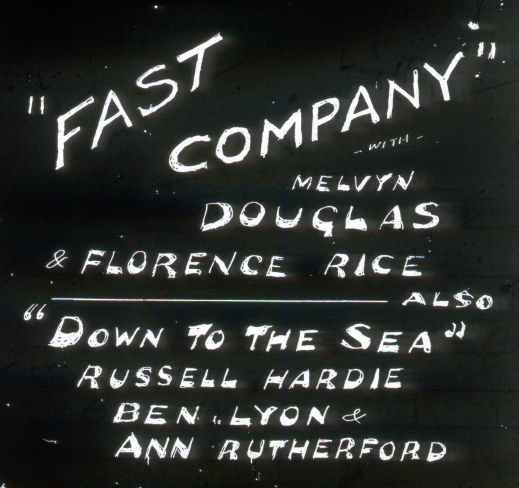 "FAST
COMPANY"
- WITH -
MELVYN
DOUGLAS
& FLORENCE RICE
ALSO
"DOWN TO THE SEA"
RUSSELL HARDIE
BEN LYON &
ANN RUTHERFORD